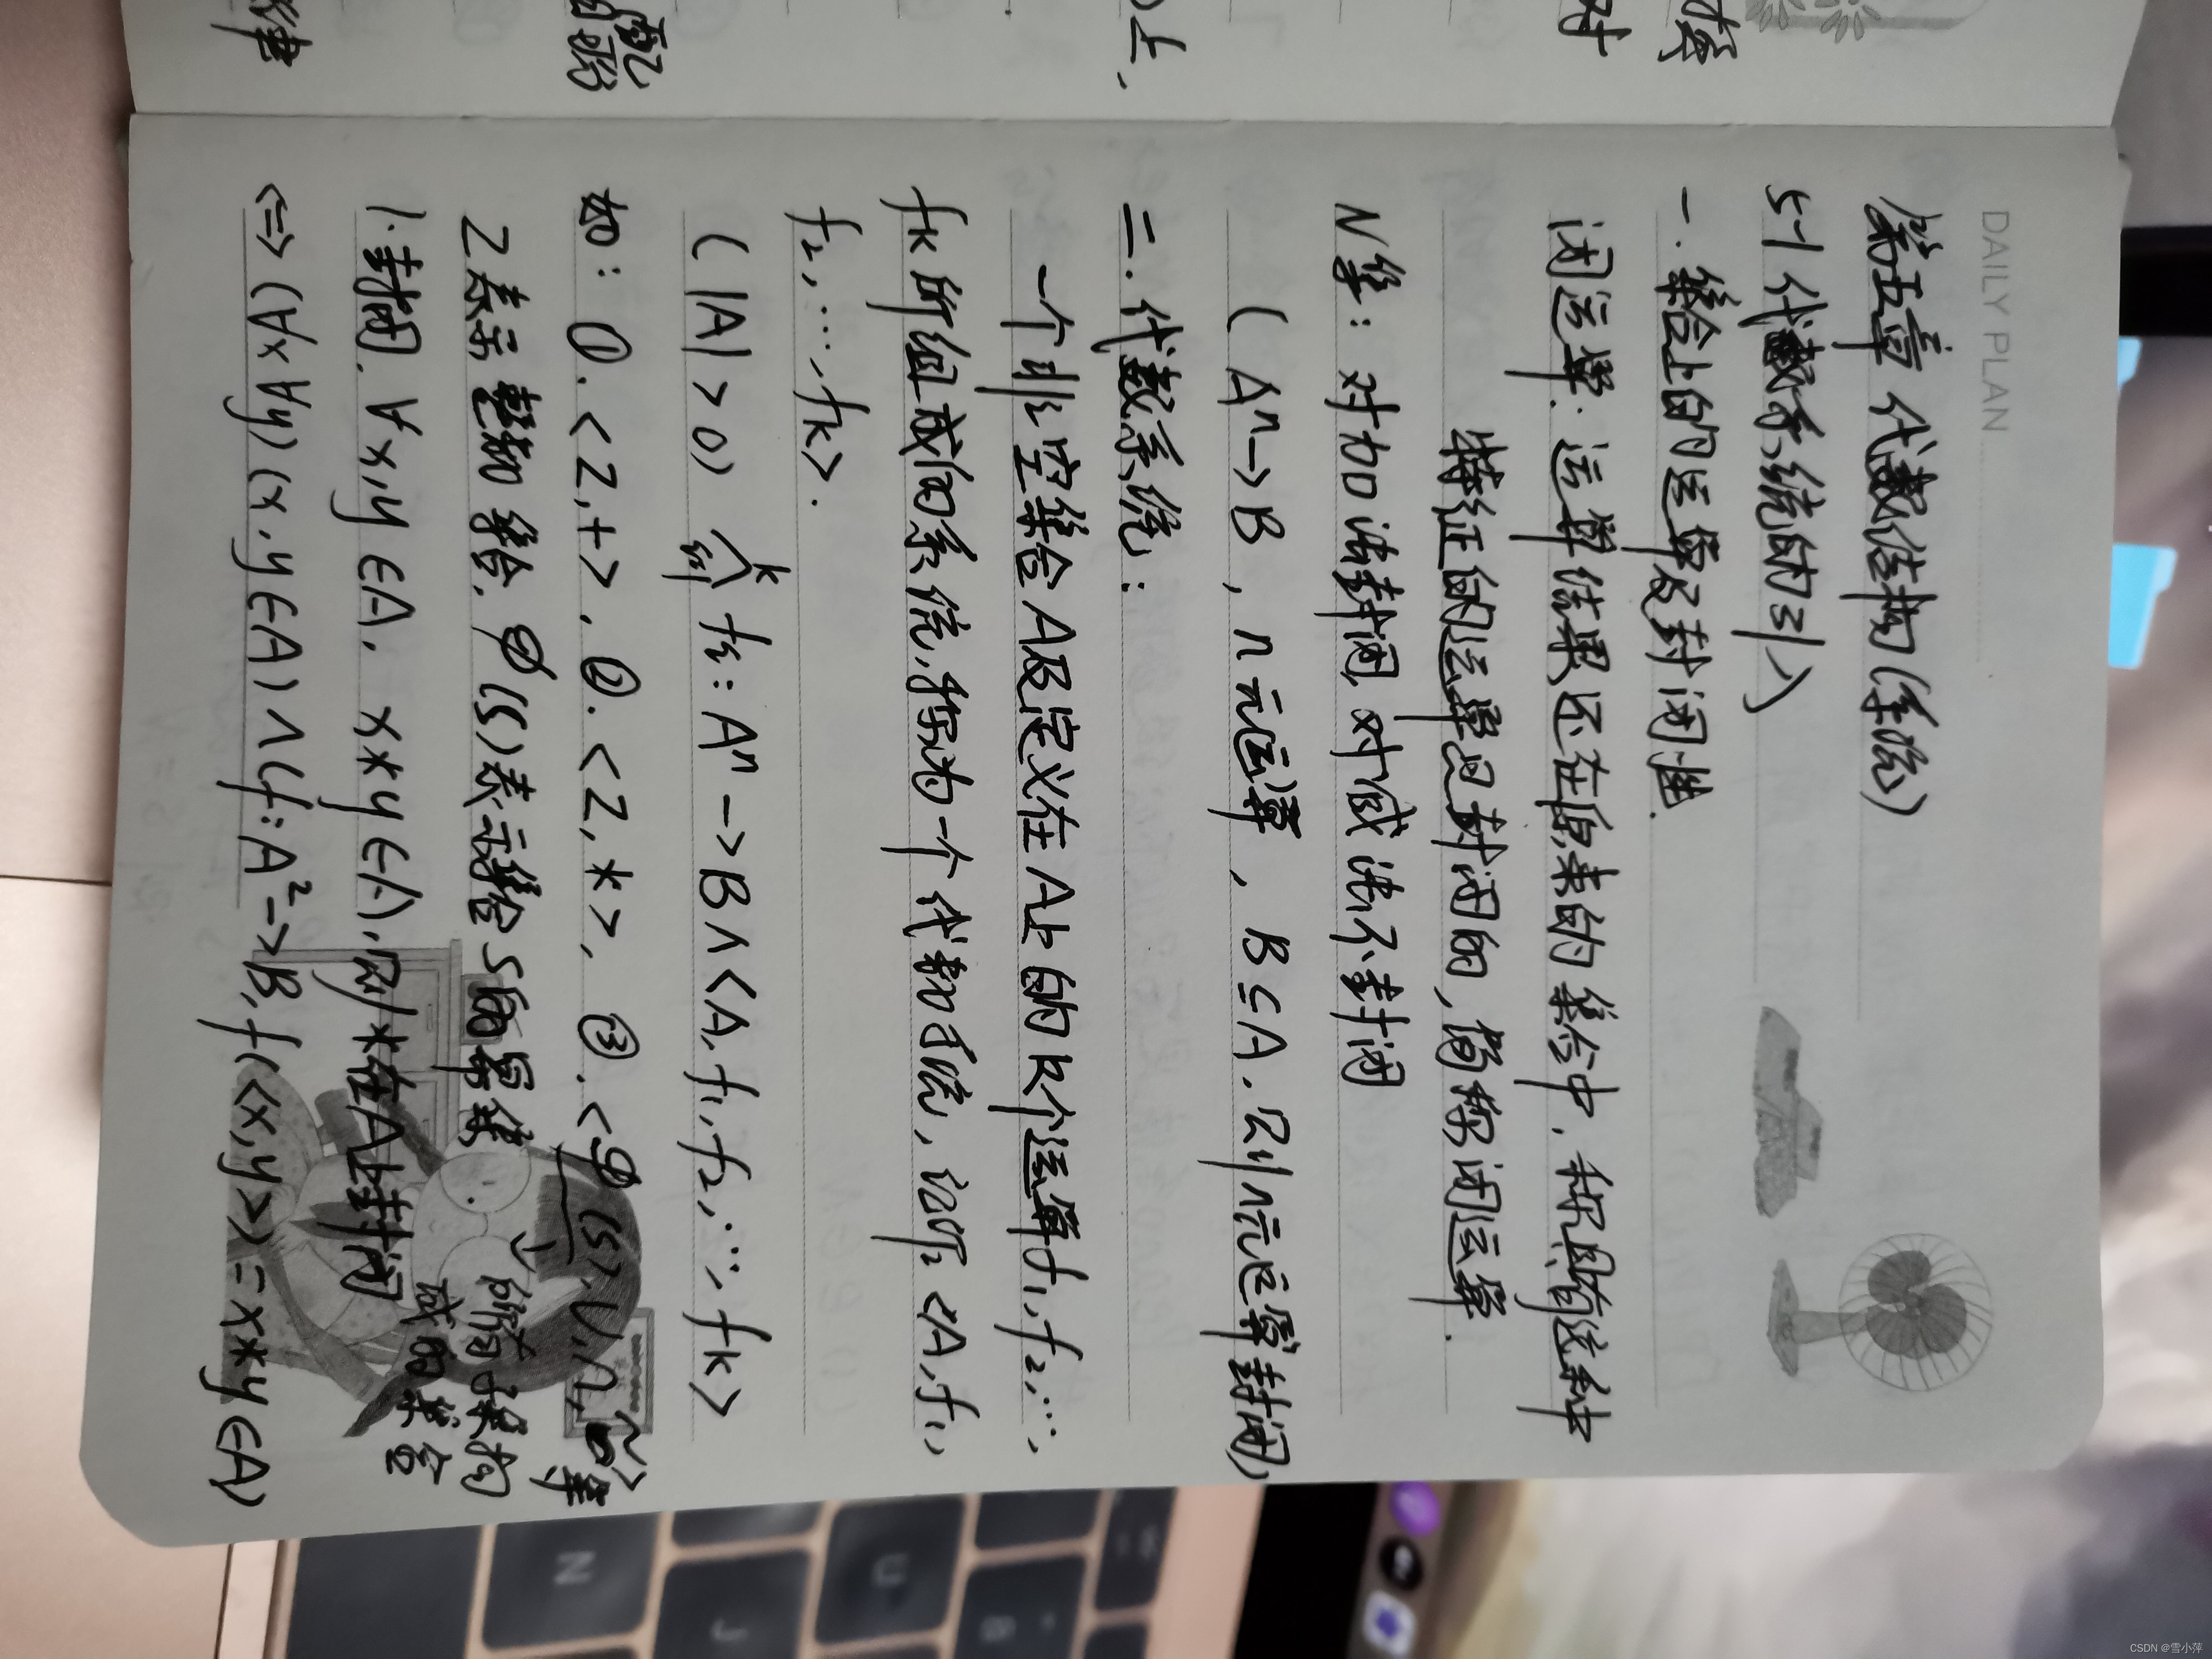 DAILY PLAN
第五章 代数结构(系统)
5-1 代数系统的引入
一. 集合上的运算及封闭性.
闭运算: 运算结果还在原来的集合中, 称具有这种
特征的运算是封闭的, 简称闭运算.
N集: 对加法封闭, 对减法不封闭
( Aⁿ→B , n元运算 , B⊆A. 则n元运算封闭)
二. 代数系统:
一个非空集合A及定义在A上的k个运算f₁, f₂, …,
fk所组成的系统, 称为一个代数系统, 记作<A, f₁,
f₂, …, fk>.
( |A| > 0) fi: Aⁿ→B∧<A, f₁, f₂, …, fk>
如: ①. <Z,+>, ②. <Z,*>, ③. <𝒫(S), ∪, ∩, ~>等
↓
所有子集构
成的集合
Z表示整数集合, 𝒫(S)表示集合S的幂集
1.封闭. ∀x,y∈A, x*y∈A, 则*在A上封闭
<=> (∀x∀y)(x,y∈A)∧(f:A²→B, f(<x,y>)=x*y∈A)
上.
对
CSDN @雪小萍